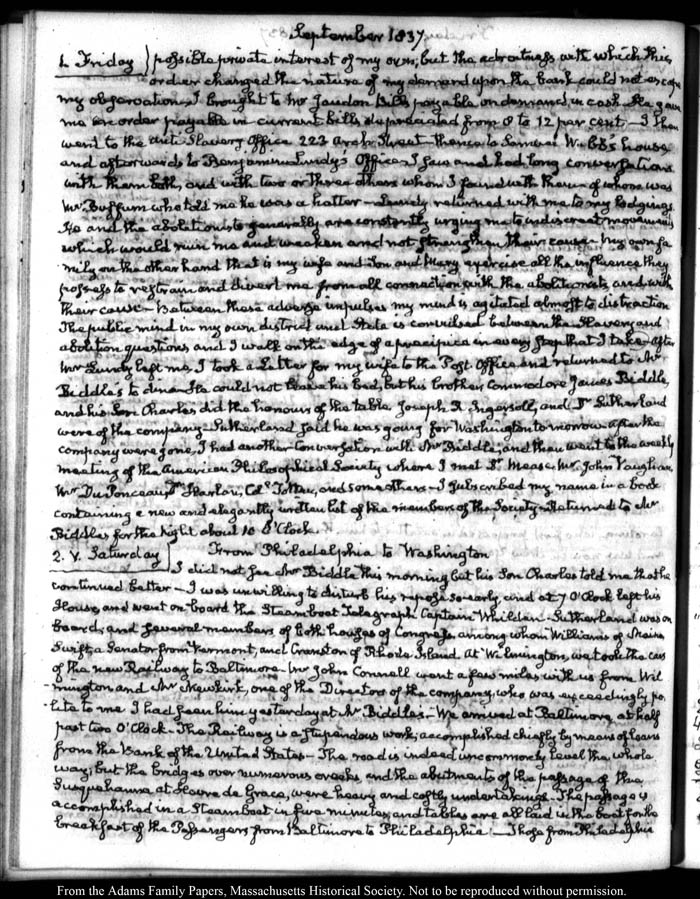 September 1837.
1. Friday } possible private interest of my own; but the adroitness with which this
order changed the nature of my demand upon the bank could not escape
my observation. I brought to Mr Jaudon Bills payable on demand, in cash. He gave
me an order payable in current bills depreciated from 8 to 12 per cent. I then
went to the Anti Slavery Office 223 Arch Street thence to Samuel Webb's house
and afterwards to Benjamin Lundy's Office. I saw and had long conversations
with them both, and with two or three others whom I found with them of whom was
Mr Buffum who told me he was a hatter. Lundy returned with me to my lodgings
He and the abolitionists generally are constantly urging me to indiscreet movements
which would ruin me and weaken and not strengthen their cause. My own fa
mily on the other hand that is my wife and Son and Mary exercise all the influence they
possess to restrain and divert me from all connection with the abolitionists and with
their cause. Between these adverse impulses my mind is agitated almost to distraction
The public mind in my own district and State is convulsed between the Slavery and
abolition questions and I walk on the edge of a precipice in every step that I take. After
Mr Lundy left me, I took a Letter for my wife to the Post-Office and returned to Mr
Biddle's to dine. He could not leave his bed, but his brother Commodore James Biddle,
and his Son Charles did the honours of the table. Joseph R. Ingersoll, and Dr Sutherland
were of the company. Sutherland said he was going for Washington tomorrow. After the
company were gone, I had another conversation with Mr Biddle; and then went to the weekly
meeting of the American Philosophical Society where I met Dr Mease, Mr John Vaughan,
Mr Du Ponceau, Dr Harlan, Col. Totten, and some others. I subscribed my name in a book
containing a new and elegantly written list of the members of the Society. Returned to Mr
Biddle's for the night about 10 O'Clock.
2. V. Saturday } From Philadelphia to Washington
I did not see Mr Biddle this morning but his Son Charles told me that he
continued better. I was unwilling to disturb his repose so early, and at 7 O'Clock left his
House, and went on board the Steamboat Telegraph Captain Whilden. Sutherland was on
board, and several members of both houses of Congress among whom Williams of Maine
Swift, a Senator from Vermont, and Cranston of Rhode Island. At Wilmington, we took the cars
of the new Railway to Baltimore. Mr John Connell went a few miles with us from Wil
mington and Mr Newkirk, one of the Directors of the company, who was exceedingly po
lite to me. I had seen him yesterday at Mr Biddle's. We arrived at Baltimore at half
past two O'Clock. The Railway is a stupendous work, accomplished chiefly by means of loans
from the Bank of the United States. The road is indeed uncommonly level the whole
way, but the bridges over numerous creeks and the abutments of the passage of the
Susquehanna at Havre de Grace, were heavy and costly undertakings. The passage is
accomplished in a Steamboat in five minutes, and tables are all laid in the boat for the
breakfast of the Passengers from Baltimore to Philadelphia. Those from Philadelphia
From the Adams Family Papers, Massachusetts Historical Society. Not to be reproduced without permission.